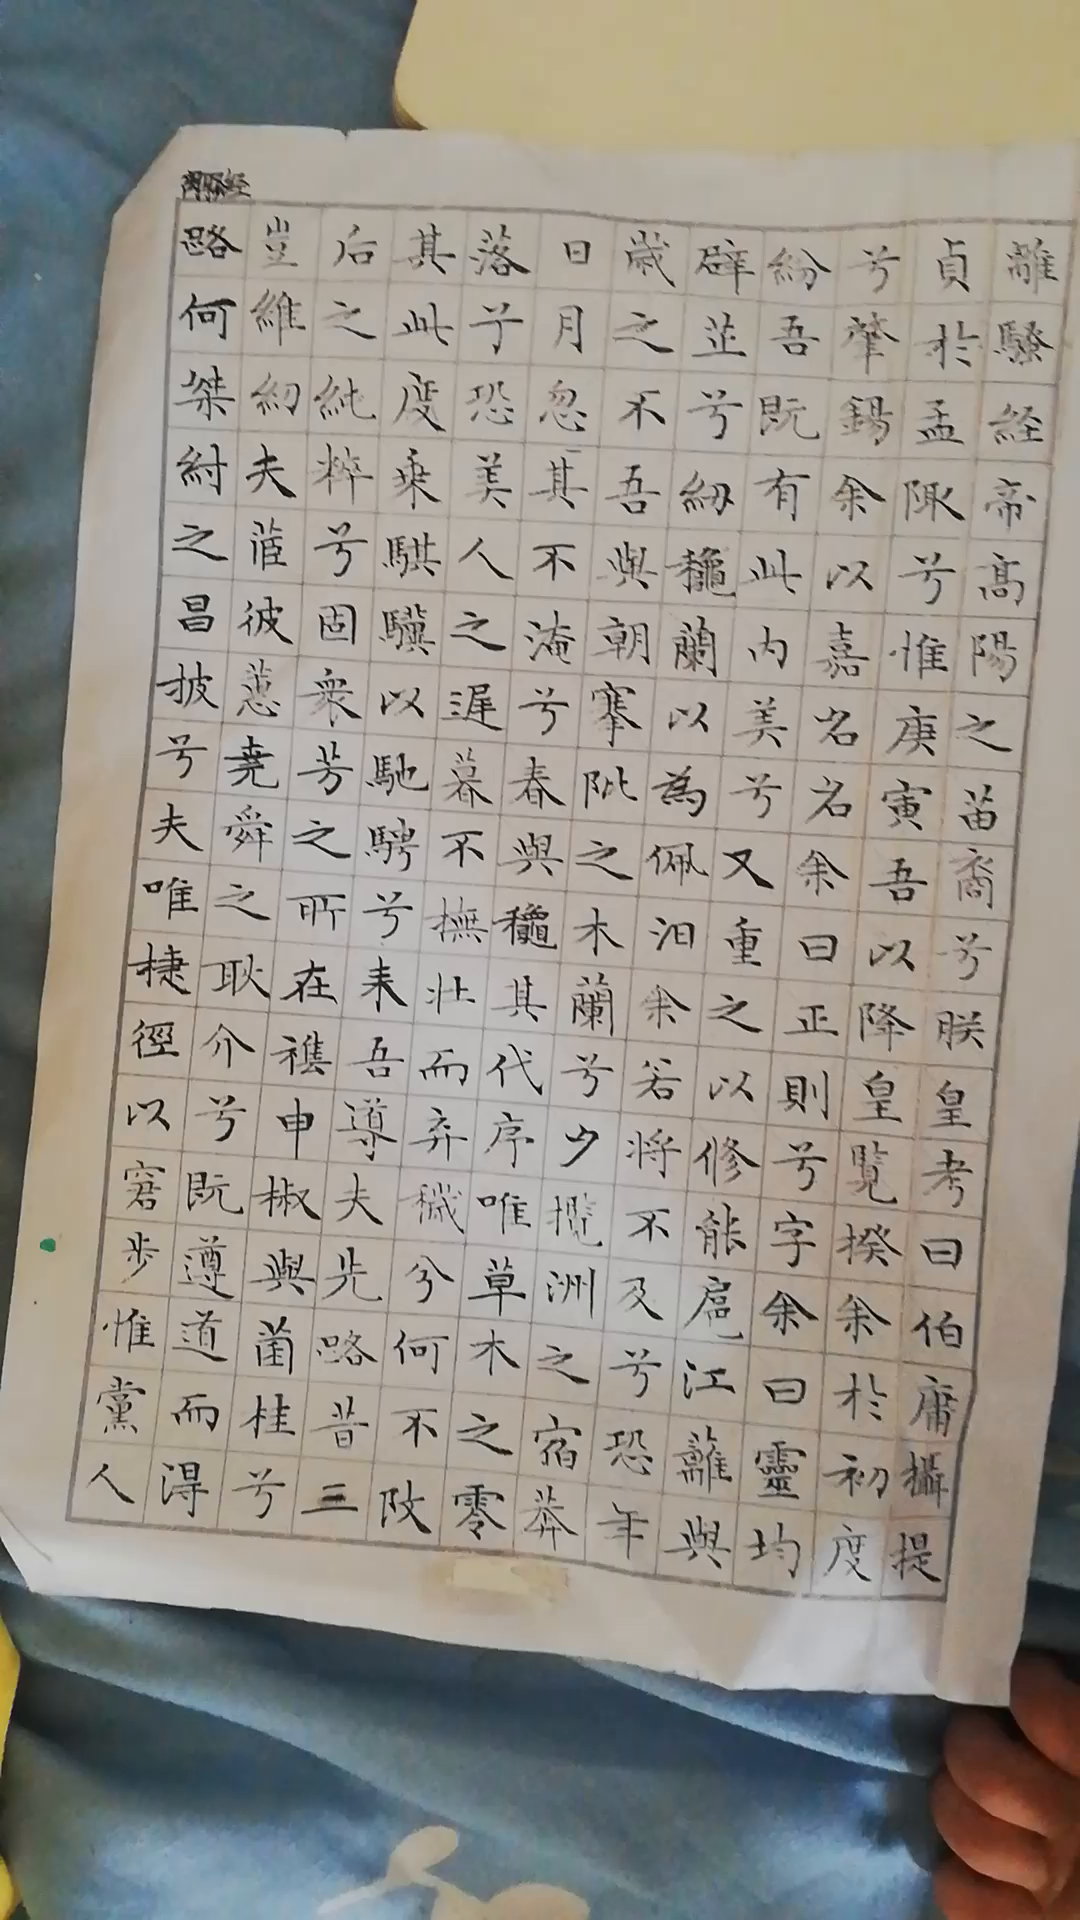 離騷経帝高陽之苗裔兮朕皇考曰伯庸攝提
貞於孟陬兮惟庚寅吾以降皇覧揆余於初度
兮肇錫余以嘉名名余曰正則兮字余曰靈均
紛吾既有此内美兮又重之以修能扈江蘺與
辟芷兮紉龝蘭以為佩汩余若將不及兮恐年
歲之不吾與朝搴阰之木蘭兮夕攬洲之宿莽
日月忽其不淹兮春與龝其代序唯草木之零
落兮恐美人之遲暮不撫壮而弃穢兮何不改
其此度乗騏驥以馳騁兮来吾導夫先路昔三
后之純粹兮固衆芳之所在襍申椒與菌桂兮
豈維紉夫茝彼蕙堯舜之耿介兮既遵道而得
路何桀紂之昌披兮夫唯捷徑以窘步惟黨人